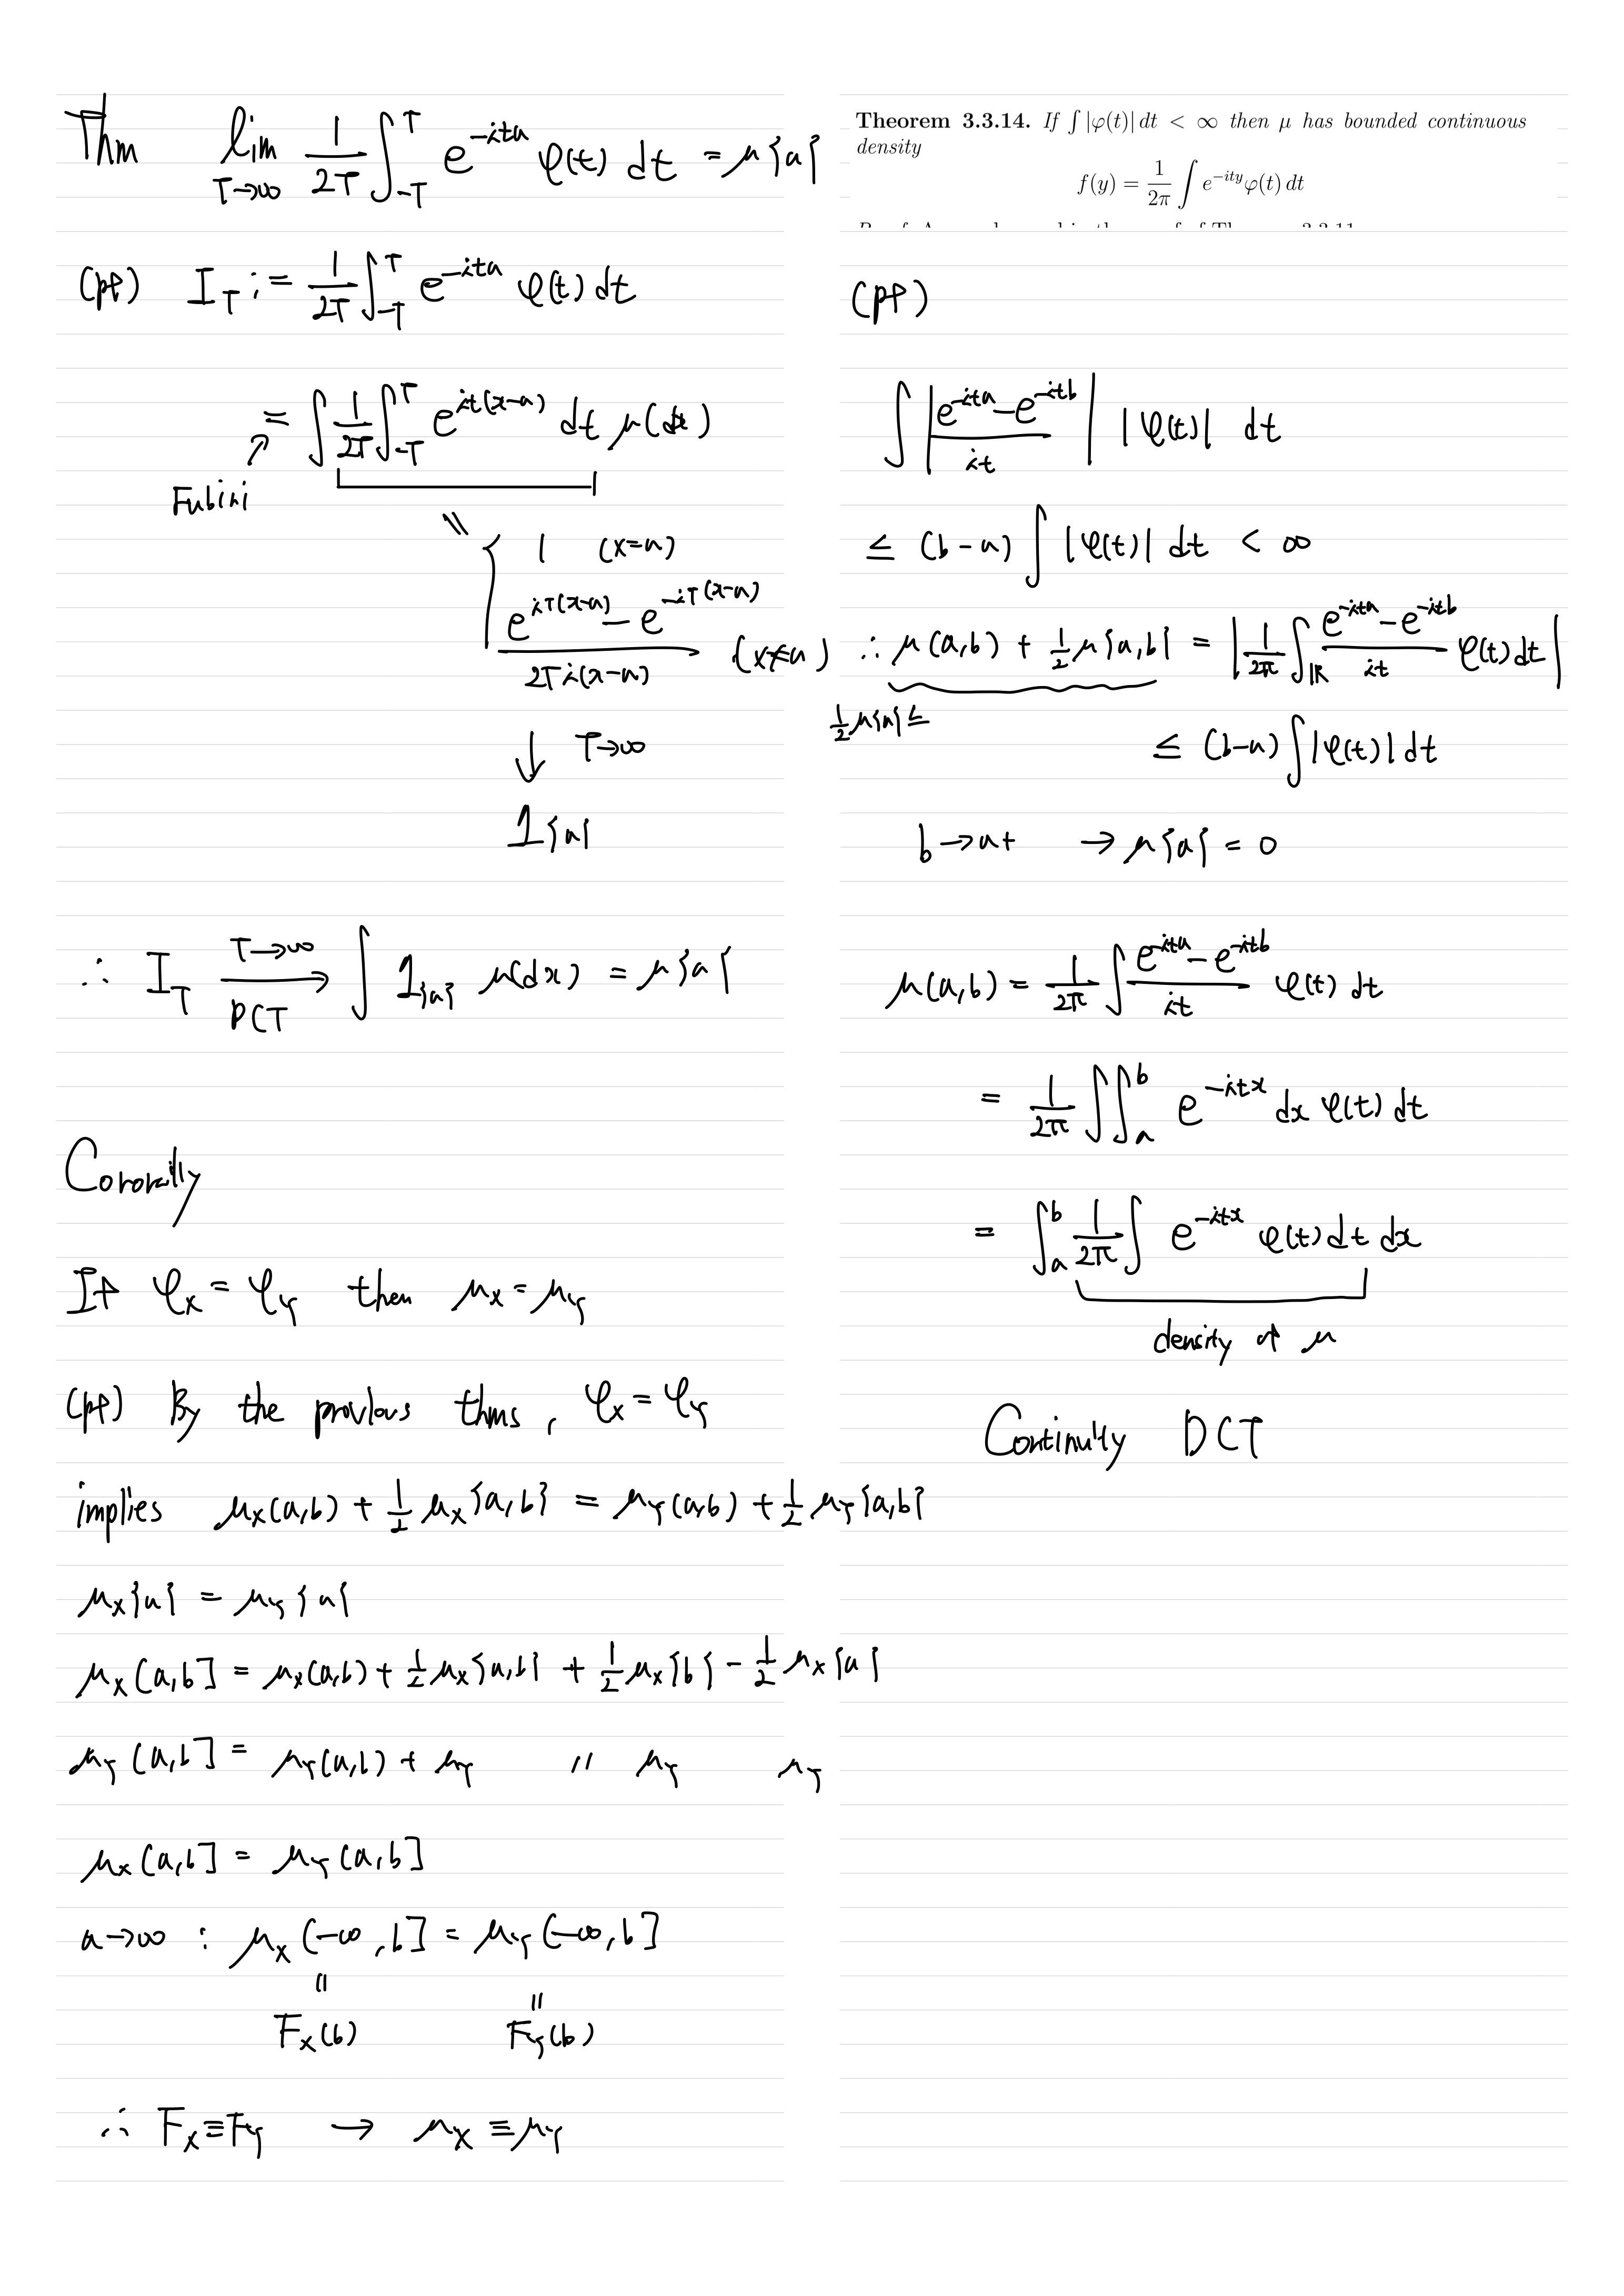 Thm lim_{T→∞} 1/2T ∫_{-T}^{T} e^{-ita} φ(t) dt = μ{a}
(pf) I_T := 1/2T ∫_{-T}^{T} e^{-ita} φ(t) dt
= ∫ 1/2T ∫_{-T}^{T} e^{it(x-a)} dt μ(dx)
Fubini
= { 1 (x=a)
(e^{iT(x-a)} - e^{-iT(x-a)}) / 2Ti(x-a) (x≠a)
↓ T→∞
1{a}
∴ I_T →^{T→∞}_{DCT} ∫ 1_{{a}} μ(dx) = μ{a}
Cororally
If φ_X = φ_Y then μ_X = μ_Y
(pf) By the provious thms, φ_X = φ_Y
implies μ_X(a,b) + 1/2 μ_X{a,b} = μ_Y(a,b) + 1/2 μ_Y{a,b}
μ_X{a} = μ_Y{a}
μ_X(a,b] = μ_X(a,b) + 1/2 μ_X{a,b} + 1/2 μ_X{b} - 1/2 μ_X{a}
μ_Y(a,b] = μ_Y(a,b) + μ_Y 〃 μ_Y μ_Y
μ_X(a,b] = μ_Y(a,b]
a→∞ : μ_X(-∞,b] = μ_Y(-∞,b]
= =
F_X(b) F_Y(b)
∴ F_X ≡ F_Y → μ_X ≡ μ_Y
Theorem 3.3.14. If ∫ |φ(t)| dt < ∞ then μ has bounded continuous
density
f(y) = 1/2π ∫ e^{-ity} φ(t) dt
(pf)
∫ |(e^{-ita} - e^{-itb}) / it| |φ(t)| dt
≤ (b-a) ∫ |φ(t)| dt < ∞
∴ μ(a,b) + 1/2 μ{a,b} = |1/2π ∫_ℝ (e^{-ita} - e^{-itb}) / it φ(t) dt|
1/2 μ{a} ≤
≤ (b-a) ∫ |φ(t)| dt
b→a+ → μ{a} = 0
μ(a,b) = 1/2π ∫ (e^{-ita} - e^{-itb}) / it φ(t) dt
= 1/2π ∫ ∫_a^b e^{-itx} dx φ(t) dt
= ∫_a^b 1/2π ∫ e^{-itx} φ(t) dt dx
density of μ
Continuity DCT